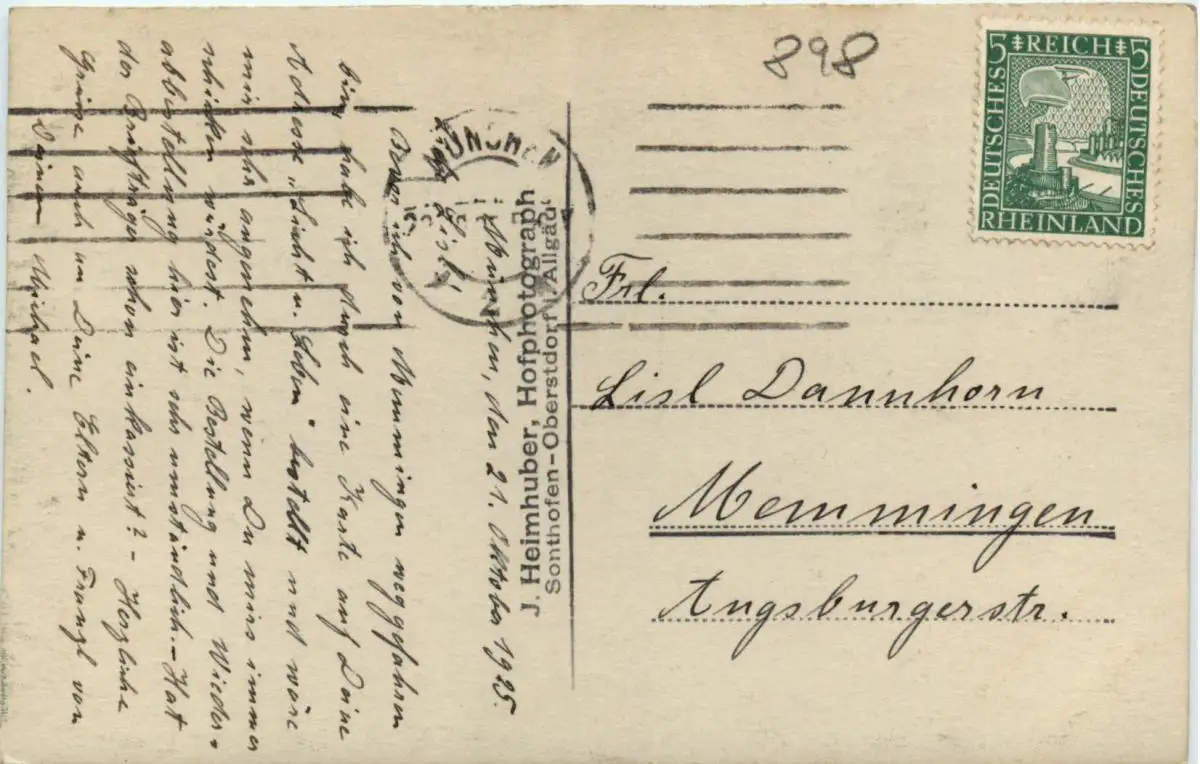 898
5 REICH 5
DEUTSCHES
DEUTSCHES
RHEINLAND
MÜNCHEN
München, den 21. Oktober 1925.
Liebe Lisl!
Bevor ich von Memmingen weggefahren
bin, habe ich durch eine Karte auf Deine
Adresse „Licht u. Leben" bestellt und wäre
mir sehr angenehm, wenn Du mirs immer
schicken würdest. Die Bestellung und Wieder-
abbestellung hier ist sehr umständlich – Hat
der Briefträger schon einkassiert? – Herzliche
Grüsse auch an Deine Eltern u. Franzl von
Deinem Michael.
J. Heimhuber, Hofphotograph
Sonthofen-Oberstdorf i. Allgäu
Frl.
Lisl Dannhorn
Memmingen
Augsburgerstr.